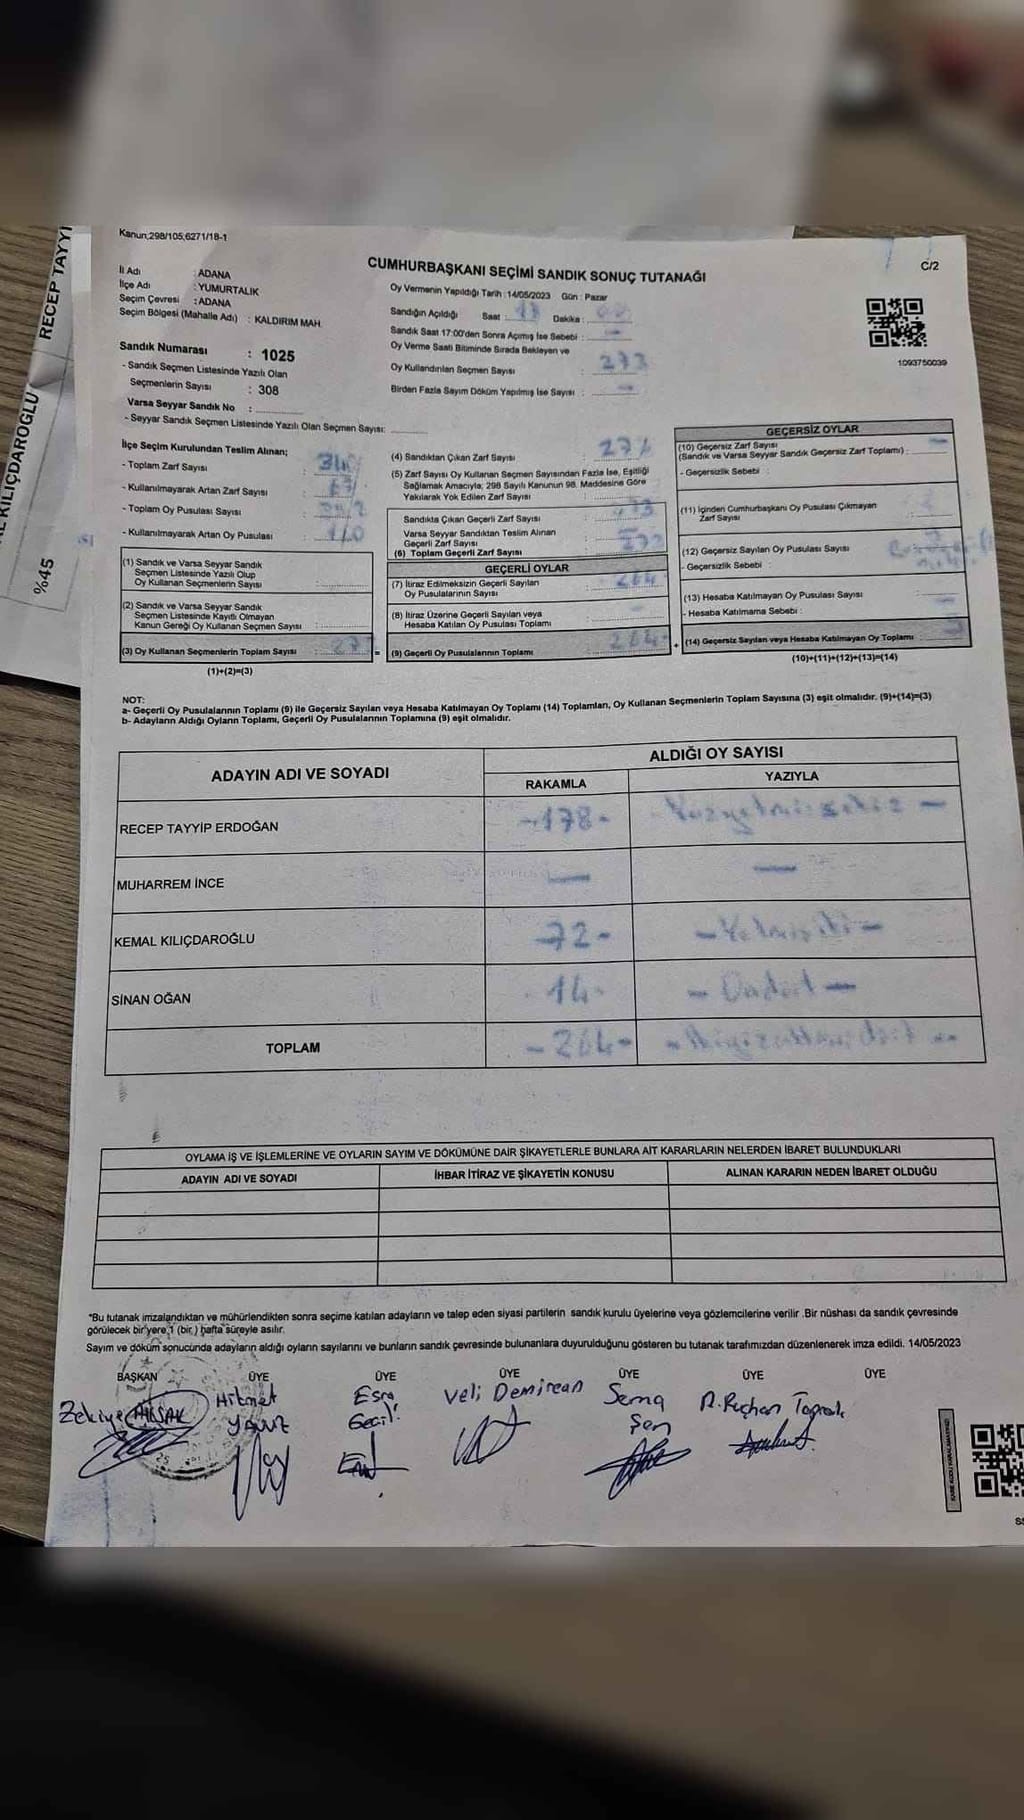 RECEP TAYYİ
KILIÇDAROĞLU
%45
Kanun;298/105;6271/18-1
C/2
CUMHURBAŞKANI SEÇİMİ SANDIK SONUÇ TUTANAĞI
İl Adı : ADANA
İlçe Adı : YUMURTALIK
Seçim Çevresi : ADANA
Seçim Bölgesi (Mahalle Adı) : KALDIRIM MAH.
Sandık Numarası : 1025
- Sandık Seçmen Listesinde Yazılı Olan
Seçmenlerin Sayısı : 308
Varsa Seyyar Sandık No :
- Seyyar Sandık Seçmen Listesinde Yazılı Olan Seçmen Sayısı:
Oy Vermenin Yapıldığı Tarih :14/05/2023 Gün : Pazar
Sandığın Açıldığı Saat : 17 Dakika :
Sandık Saat 17:00'den Sonra Açımış İse Sebebi : —
Oy Verme Saati Bitiminde Sırada Bekleyen ve
Oy Kullandırılan Seçmen Sayısı : 273
Birden Fazla Sayım Döküm Yapılmış İse Sayısı : —
1093750039
İlçe Seçim Kurulundan Teslim Alınan;
- Toplam Zarf Sayısı :
- Kullanılmayarak Artan Zarf Sayısı :
- Toplam Oy Pusulası Sayısı :
- Kullanılmayarak Artan Oy Pusulası :
(1) Sandık ve Varsa Seyyar Sandık
Seçmen Listesinde Yazılı Olup
Oy Kullanan Seçmenlerin Sayısı :
(2) Sandık ve Varsa Seyyar Sandık
Seçmen Listesinde Kayıtlı Olmayan
Kanun Gereği Oy Kullanan Seçmen Sayısı :
(3) Oy Kullanan Seçmenlerin Toplam Sayısı :
(1)+(2)=(3)
(4) Sandıktan Çıkan Zarf Sayısı :
(5) Zarf Sayısı Oy Kullanan Seçmen Sayısından Fazla İse, Eşitliği
Sağlamak Amacıyla; 298 Sayılı Kanunun 98. Maddesine Göre
Yakılarak Yok Edilen Zarf Sayısı :
Sandıkta Çıkan Geçerli Zarf Sayısı :
Varsa Seyyar Sandıktan Teslim Alınan
Geçerli Zarf Sayısı : —
(6) Toplam Geçerli Zarf Sayısı :
GEÇERLİ OYLAR
(7) İtiraz Edilmeksizin Geçerli Sayılan
Oy Pusulalarının Sayısı : 264
(8) İtiraz Üzerine Geçerli Sayılan veya
Hesaba Katılan Oy Pusulası Toplamı : —
(9) Geçerli Oy Pusulalarının Toplamı : 264
GEÇERSİZ OYLAR
(10) Geçersiz Zarf Sayısı
(Sandık ve Varsa Seyyar Sandık Geçersiz Zarf Toplamı) : —
- Geçersizlik Sebebi :
(11) İçinden Cumhurbaşkanı Oy Pusulası Çıkmayan
Zarf Sayısı :
(12) Geçersiz Sayılan Oy Pusulası Sayısı :
- Geçersizlik Sebebi :
(13) Hesaba Katılmayan Oy Pusulası Sayısı : —
- Hesaba Katılmama Sebebi : —
(14) Geçersiz Sayılan veya Hesaba Katılmayan Oy Toplamı :
(10)+(11)+(12)+(13)=(14)
NOT:
a- Geçerli Oy Pusulalarının Toplamı (9) ile Geçersiz Sayılan veya Hesaba Katılmayan Oy Toplamı (14) Toplamları, Oy Kullanan Seçmenlerin Toplam Sayısına (3) eşit olmalıdır. (9)+(14)=(3)
b- Adayların Aldığı Oyların Toplamı, Geçerli Oy Pusulalarının Toplamına (9) eşit olmalıdır.
ADAYIN ADI VE SOYADI
ALDIĞI OY SAYISI
RAKAMLA YAZIYLA
RECEP TAYYİP ERDOĞAN -178- Yüzyetmişsekiz -
MUHARREM İNCE — —
KEMAL KILIÇDAROĞLU -72- - Yetmişiki -
SİNAN OĞAN - 14 - - Ondört -
TOPLAM - 264 - - İkiyüzaltmışdört -
OYLAMA İŞ VE İŞLEMLERİNE VE OYLARIN SAYIM VE DÖKÜMÜNE DAİR ŞİKAYETLERLE BUNLARA AİT KARARLARIN NELERDEN İBARET BULUNDUKLARI
ADAYIN ADI VE SOYADI İHBAR İTİRAZ VE ŞİKAYETİN KONUSU ALINAN KARARIN NEDEN İBARET OLDUĞU
*Bu tutanak imzalandıktan ve mühürlendikten sonra seçime katılan adayların ve talep eden siyasi partilerin sandık kurulu üyelerine veya gözlemcilerine verilir .Bir nüshası da sandık çevresinde
görülecek bir yere 1 (bir ) hafta süreyle asılır.
Sayım ve döküm sonucunda adayların aldığı oyların sayılarını ve bunların sandık çevresinde bulunanlara duyurulduğunu gösteren bu tutanak tarafımızdan düzenlenerek imza edildi. 14/05/2023
BAŞKAN ÜYE ÜYE ÜYE ÜYE ÜYE ÜYE
Zekiye AKSAK Hikmet Esra Veli Demircan Sema
YAVUZ Gecil Şen